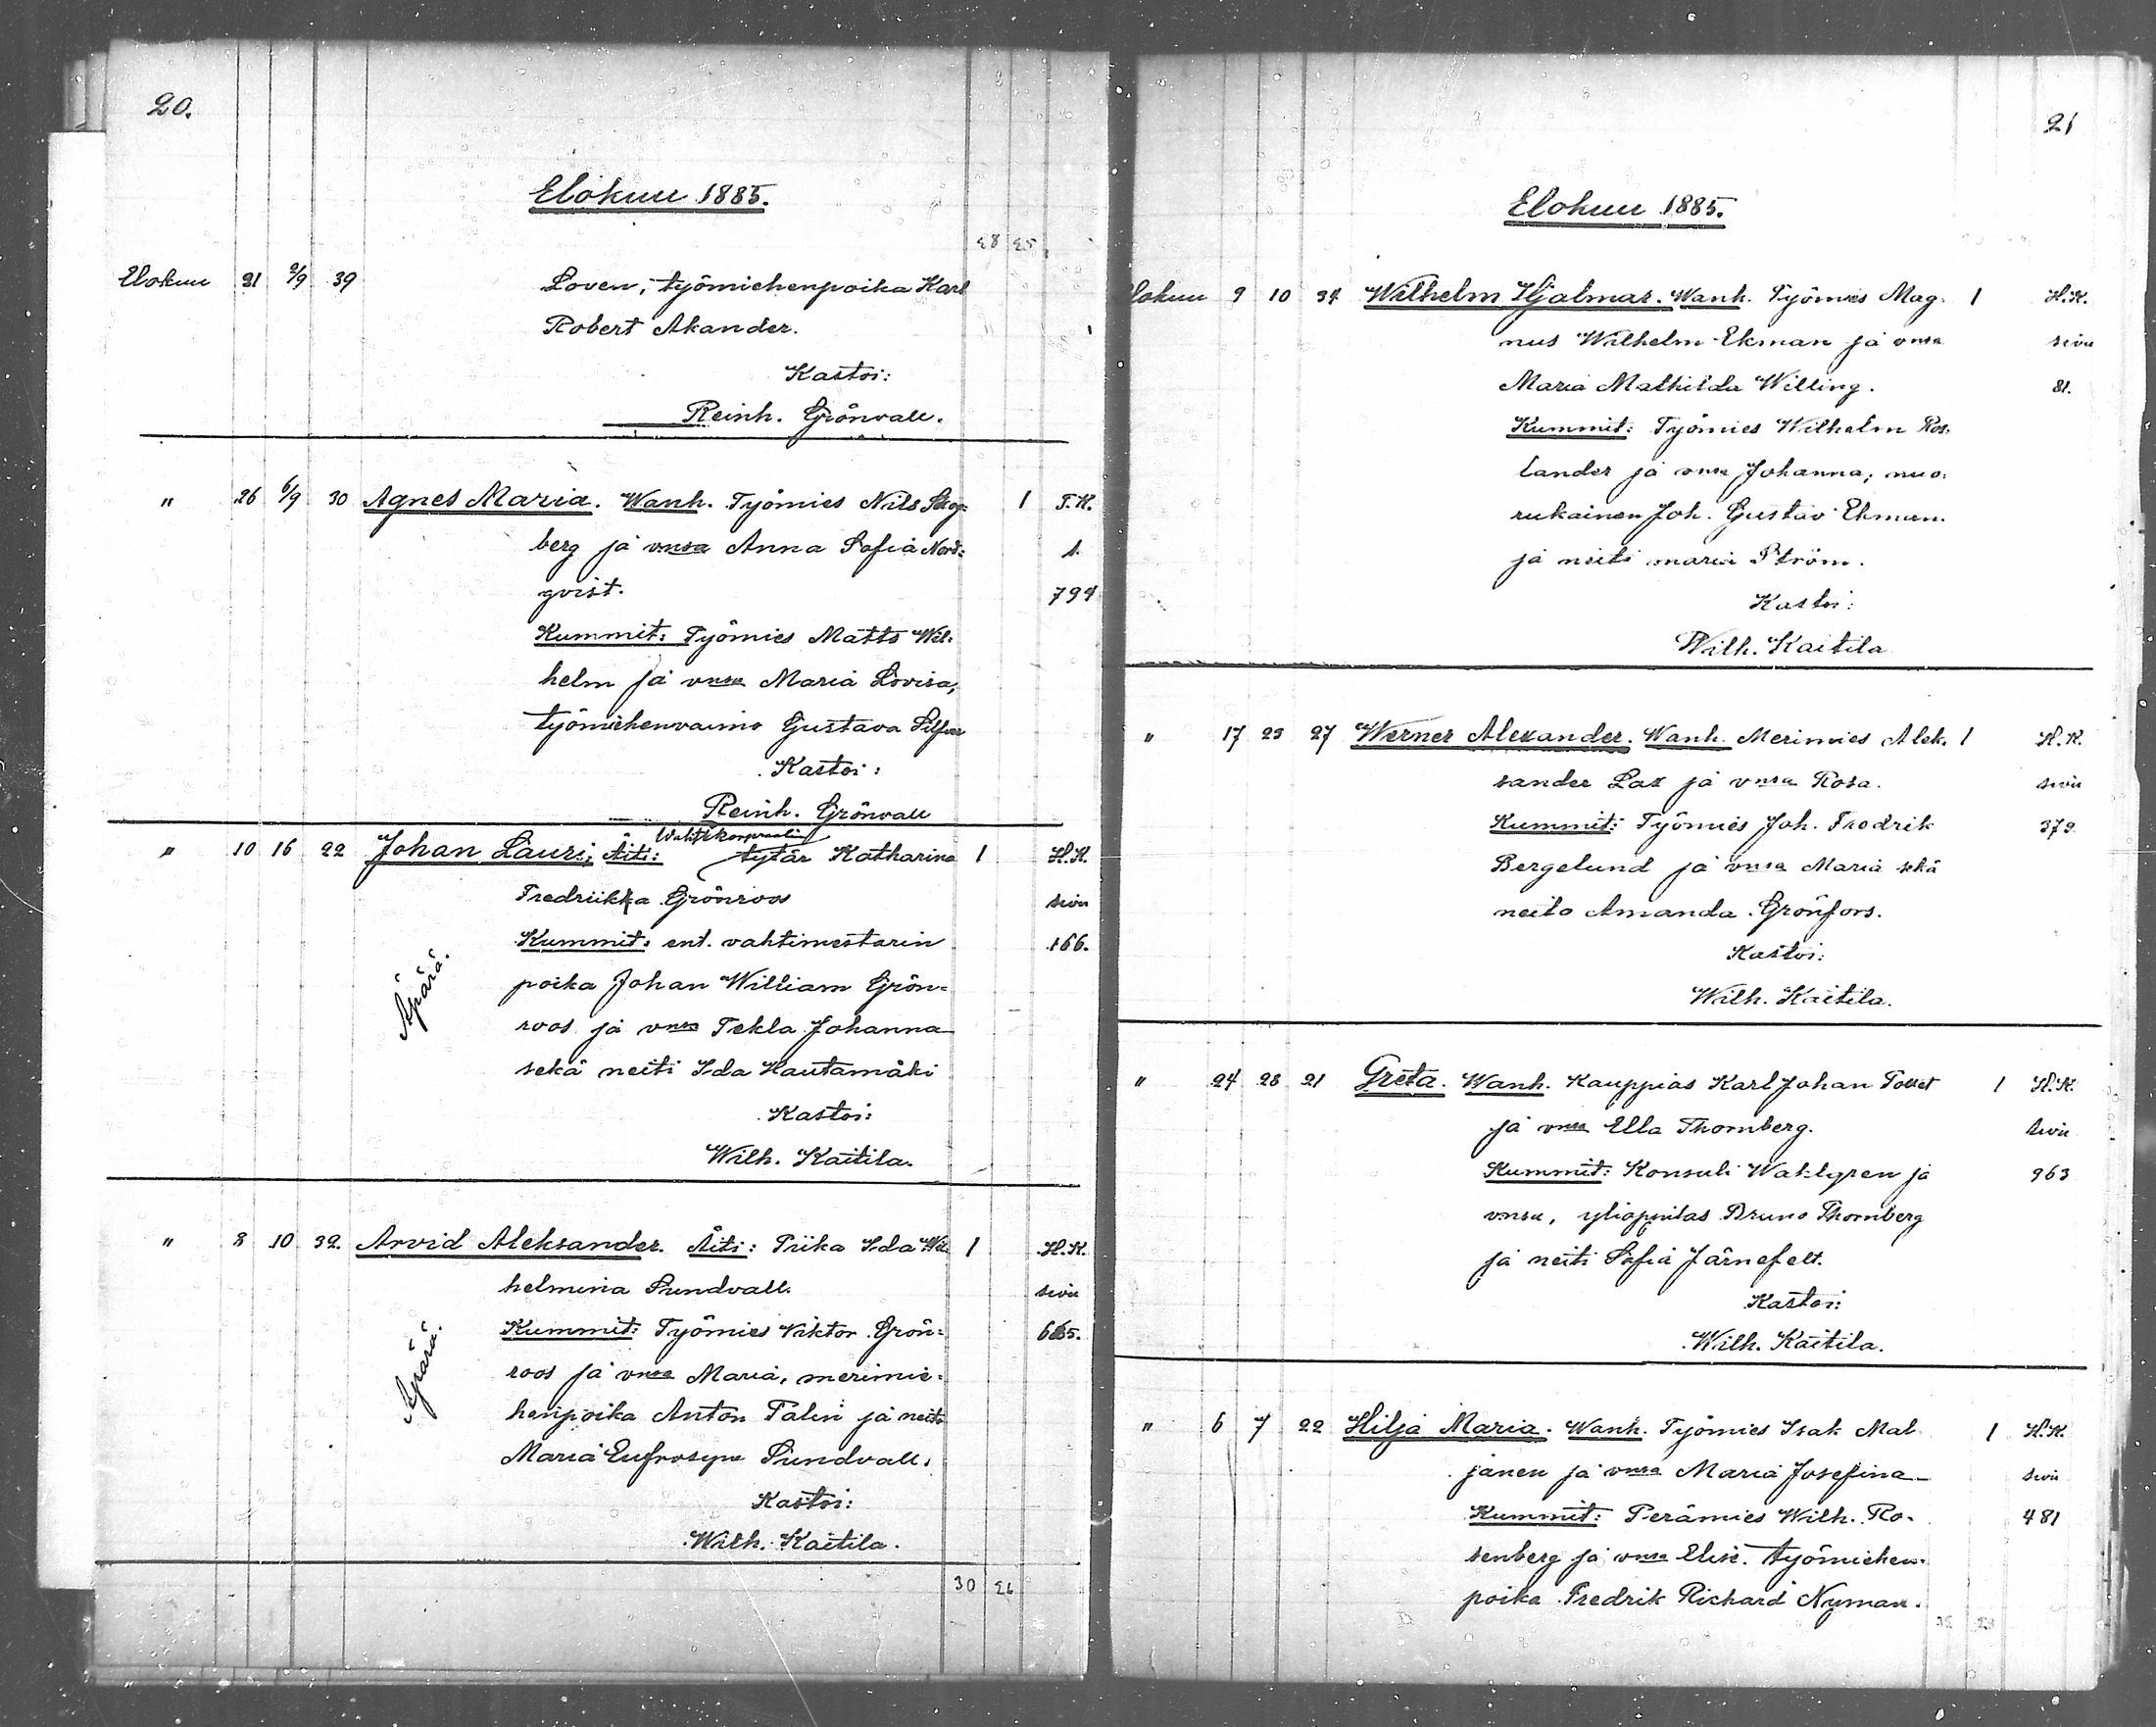 20.
Elokuu 1885.
28 25
Elokuu 21 2/9 39 Loven, työmiehenpoika Karl
Robert Akander.
Kastoi:
Reinh. Grönvall.
" 26 6/9 30 Agnes Maria. Wanh. Työmies Nils Skog= 1 T.K.
berg ja vmsa Anna Sofia Nord= s.
qvist. 794
Kummit: Työmies Matts Wil=
helm ja vmsa Maria Lovisa,
työmiehenvaimo Gustava Silfver
Kastoi:
Reinh. Grönvall
Wahtikorpraalin
" 10 16 22 Johan Lauri; Äiti: tytär Katharina 1 H.K.
Fredriikka Grönroos sivu
Kummit: ent. vahtimestarin 166.
poika Johan William Grön=
roos ja vmsa Tekla Johanna
sekä neiti Ida Hautamäki
Äpärä.
Kastoi:
Wilh. Kaitila.
" 8 10 32. Arvid Aleksander. Äiti: Piika Ida Wil 1 H.K.
helmina Sundvall. sivu
Kummit: Työmies Viktor Grön= 665.
roos ja vmsa Maria, merimie=
henpoika Anton Talin ja neito
Maria Eufrosyne Sundvall.
Äpärä.
Kastoi:
Wilh. Kaitila.
30 26
21
Elokuu 1885.
Elokuu 9 10 34 Wilhelm Hjalmar. Wanh. Työmies Mag= 1 H.K.
nus Wilhelm Ekman ja vmsa sivu
Maria Mathilda Willing. 81.
Kummit: Työmies Wilhelm Ros=
lander ja vmsa Johanna; nuo=
rukainen Joh. Gustav Ekman
ja neiti Maria Ström.
Kastoi:
Wilh. Kaitila
" 17 23 27 Werner Alexander. Wanh. Merimies Alek= 1 H.K.
sander Lax ja vmsa Rosa. sivu
Kummit: Työmies Joh. Fredrik 379
Bergelund ja vmsa Maria sekä
neito Amanda Grönfors.
Kastoi:
Wilh. Kaitila.
" 24 28 21 Greta. Wanh. Kauppias Karl Johan Tollet 1 H.K.
ja vmsa Ella Thornberg. sivu
Kummit: Konsuli Wahlgren ja 963
vmsa, ylioppilas Bruno Thornberg
ja neiti Sofia Järnefelt.
Kastoi:
Wilh. Kaitila.
" 6 7 22 Hilja Maria. Wanh. Työmies Isak Mal= 1 H.K.
janen ja vmsa Maria Josefina sivu
Kummit: Perämies Wilh. Ro= 481
senberg ja vmsa Elise. työmiehen=
poika Fredrik Richard Nyman.